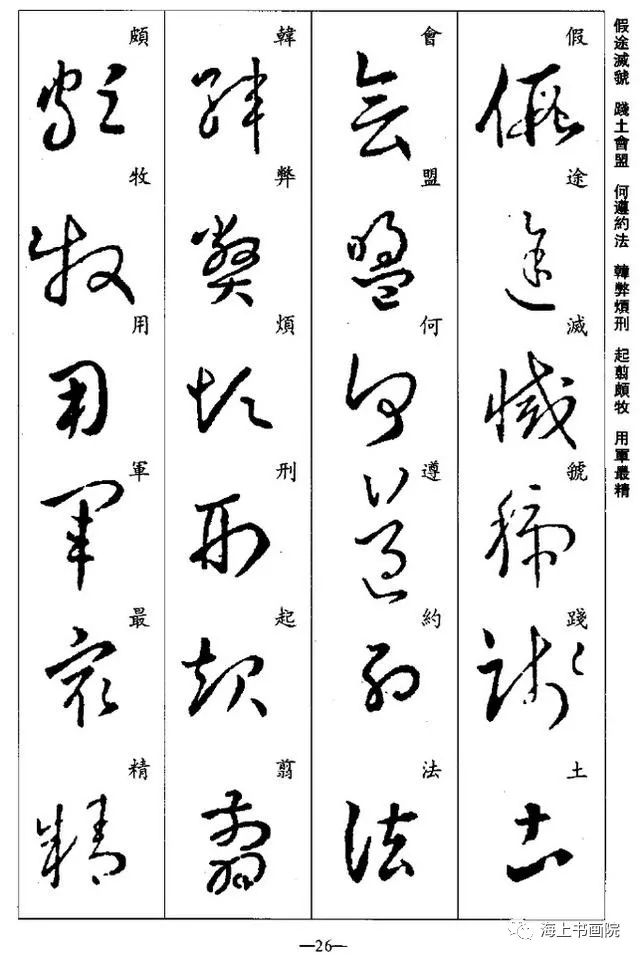 假途滅虢　踐土會盟　何遵約法　韓弊煩刑　起翦頗牧　用軍最精
假途滅虢踐土
會盟何遵約法
韓弊煩刑起翦
頗牧用軍最精
—26—
海上书画院